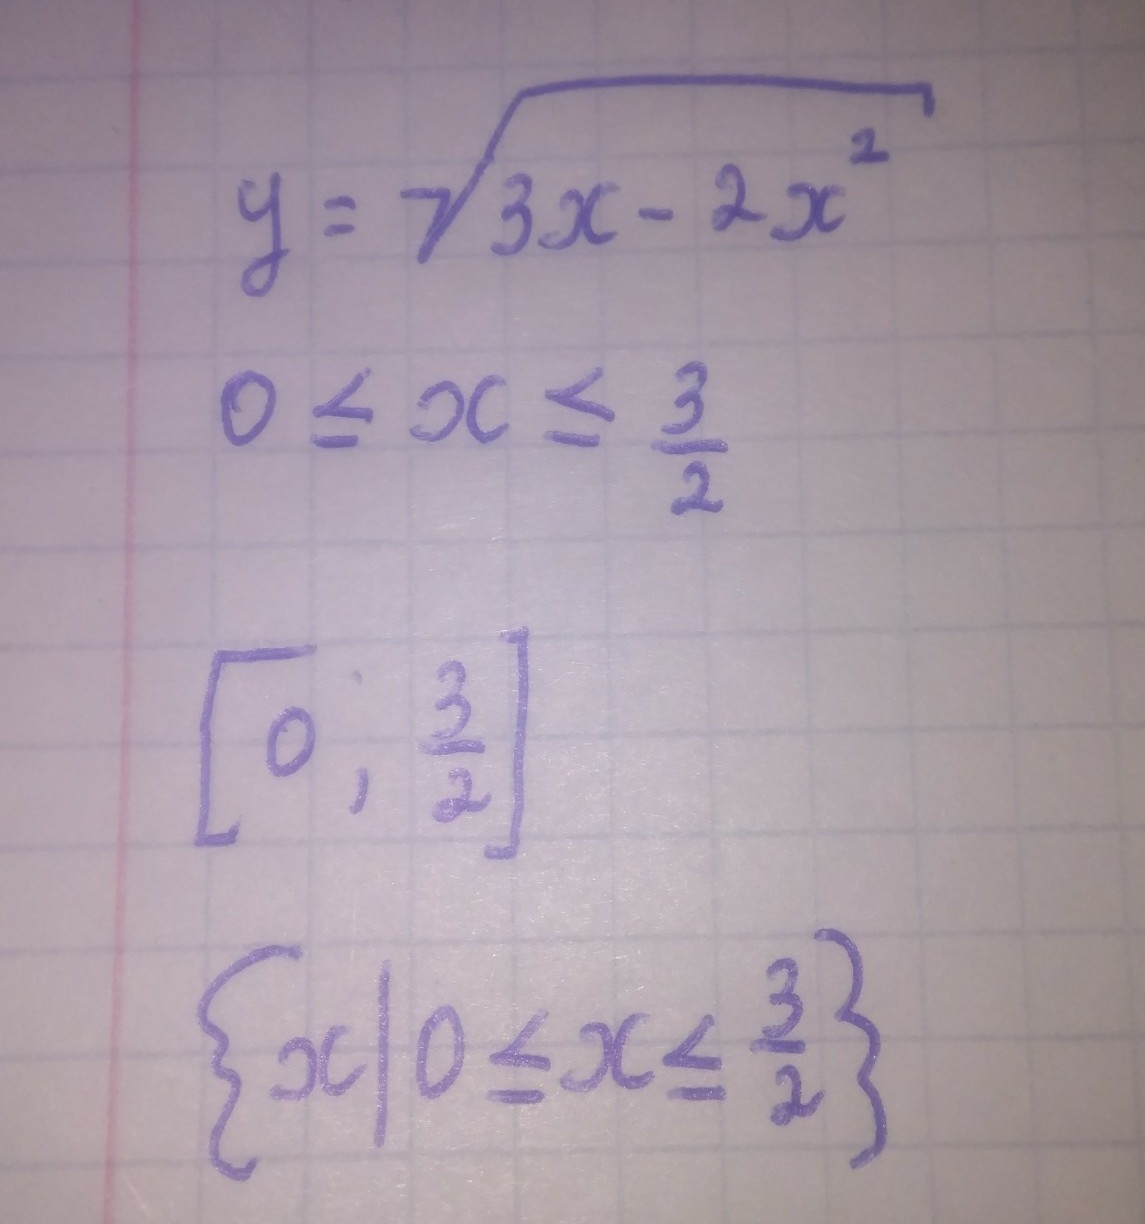 y = √(3x - 2x²)
0 ≤ x ≤ 3/2
[0, 3/2]
{x | 0 ≤ x ≤ 3/2}